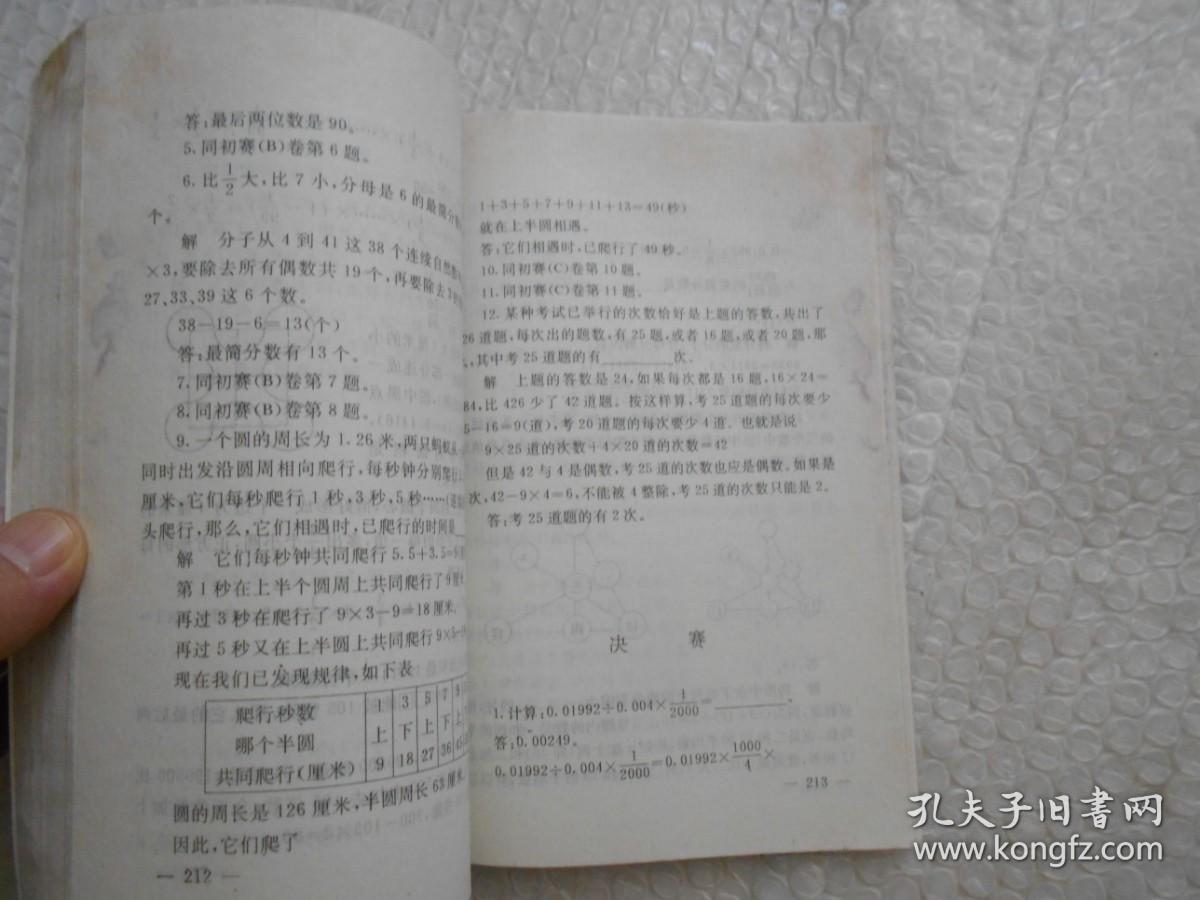 答:最后两位数是 90。
5.同初赛(B)卷第 6 题。
6.比 1/2 大,比 7 小,分母是 6 的最简分
个。
解 分子从 4 到 41 这 38 个连续自然
×3,要除去所有偶数共 19 个,再要除去 3
27、33、39 这 6 个数。
38-19-6=13(个)
答:最简分数有 13 个。
7.同初赛(B)卷第 7 题。
8.同初赛(B)卷第 8 题。
9.一个圆的周长为 1.26 米,两只蚂蚁
同时出发沿圆周相向爬行,每秒钟分别爬行
厘米,它们每秒爬行 1 秒,3 秒,5 秒……
头爬行,那么,它们相遇时,已爬行的时间是
解 它们每秒钟共同爬行 5.5+3.5=9
第 1 秒在上半个圆周上共同爬行了 9 厘米.
再过 3 秒在爬行了 9×3-9=18 厘米.
再过 5 秒又在上半圆上共同爬行 9×5-
现在我们已发现规律,如下表
爬行秒数 1 3 5 7 9
哪个半圆 上 下 上 下 上
共同爬行(厘米) 9 18 27 36 45
圆的周长是 126 厘米,半圆周长 63 厘米,
因此,它们爬了
— 212 —
1+3+5+7+9+11+13=49(秒)
就在上半圆相遇。
答:它们相遇时,已爬行了 49 秒。
10.同初赛(C)卷第 10 题。
11.同初赛(C)卷第 11 题。
12.某种考试已举行的次数恰好是上题的答数,共出了
26 道题,每次出的题数,有 25 题,或者 16 题,或者 20 题,那
,其中考 25 道题的有 次.
解 上题的答数是 24,如果每次都是 16 题,16×24=
84,比 426 少了 42 道题。按这样算,考 25 道题的每次要少
5-16=9(道),考 20 道题的每次要少 4 道。也就是说
9×25 道的次数+4×20 道的次数=42
但是 42 与 4 是偶数,考 25 道的次数也应是偶数。如果是
次,42-9×4=6,不能被 4 整除,考 25 道的次数只能是 2。
答:考 25 道题的有 2 次。
决 赛
1.计算:0.01992÷0.004×1/2000= .
答:0.00249。
0.01992÷0.004×1/2000=0.01992×1000/4×
— 213 —
孔夫子旧书网
www.kongfz.com